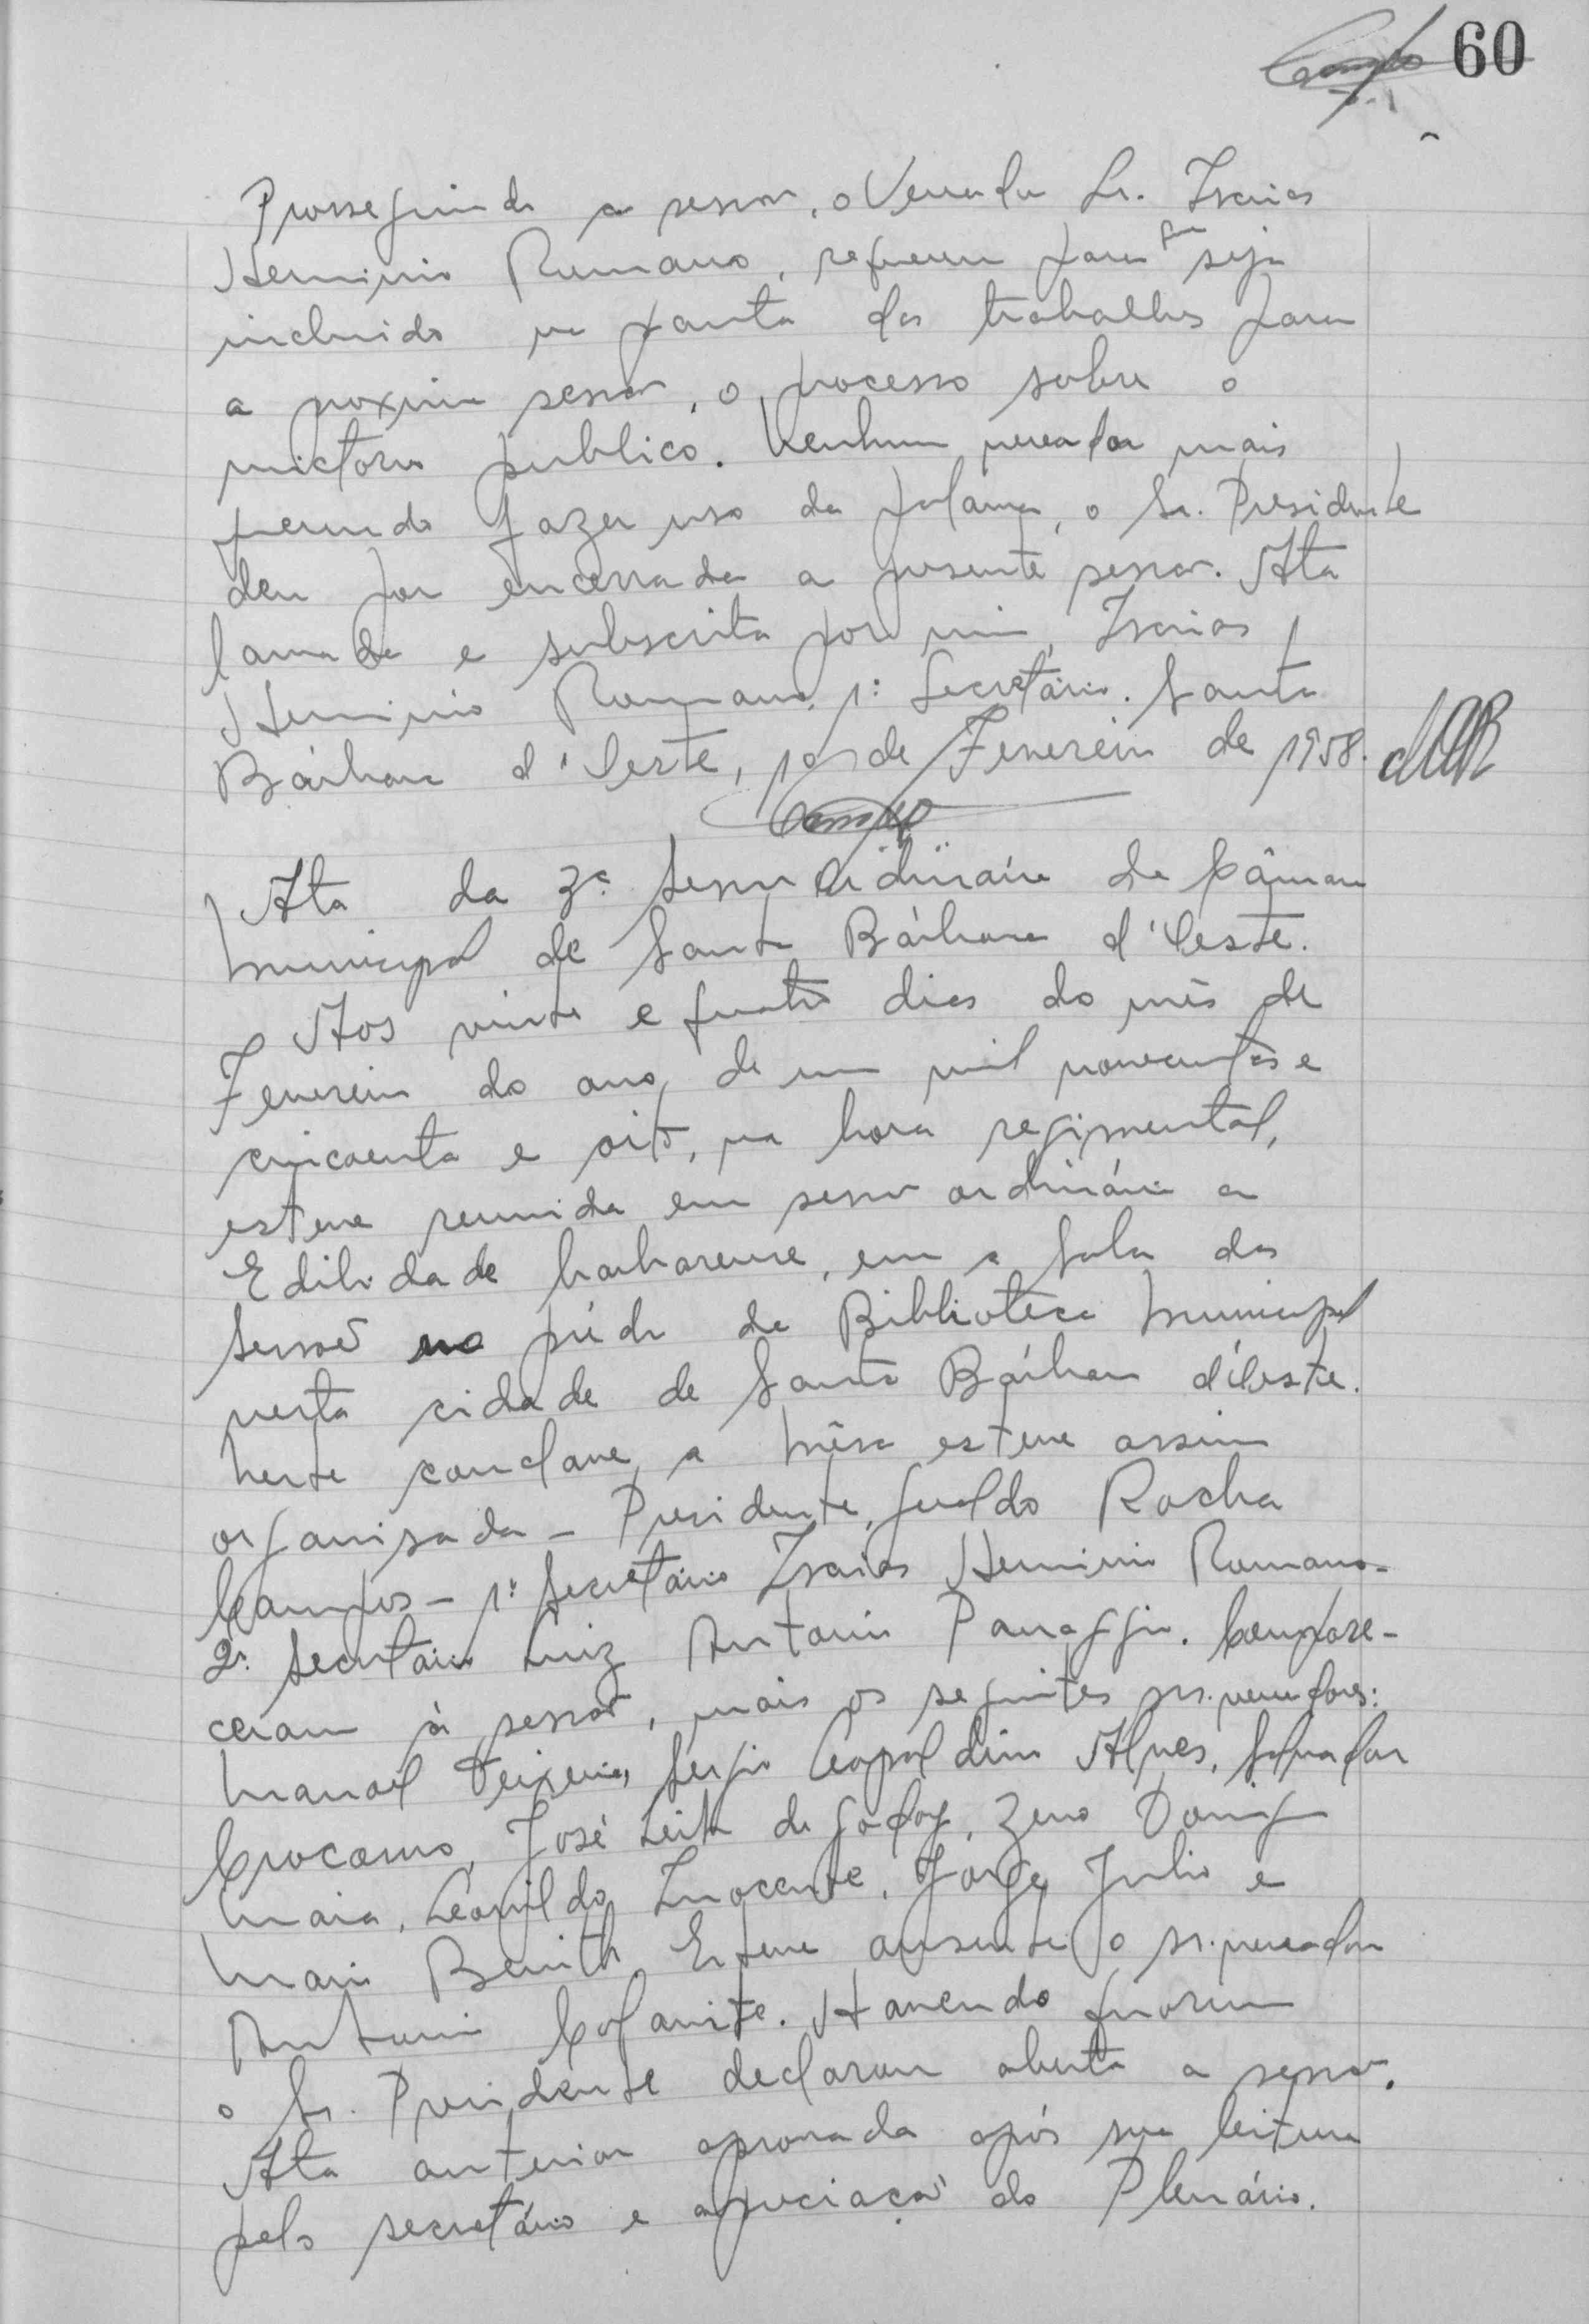 Campos 60
Prosseguindo a sessão, o Vereador Sr. Isaias
Herminio Romano, requereu para que seja
incluido na pauta dos trabalhos para
a proxima sessão, o processo sobre o
mictorio publico. Nenhum vereador mais
querendo fazer uso da palavra, o Sr. Presidente
deu por encerrada a presente sessão. Ata
lavrada e subscrita por mim, Isaias
Herminio Romano, 1º Secretário. Santa
Bárbara d'Oeste, 10 de Fevereiro de 1958.
Campos
Ata da 3ª Sessão Ordinária da Câmara
Municipal de Santa Bárbara d'Oeste.
Aos vinte e quatro dias do mês de
Fevereiro do ano de um mil novecentos e
cincoenta e oito, na hora regimental,
esteve reunida em sessão ordinária a
Edilidade barbarense, em a Sala das
Sessões no prédio da Biblioteca Municipal
nesta cidade de Santa Bárbara d'Oeste.
Neste conclave, a Mêsa esteve assim
organisada - Presidente, Geraldo Rocha
Campos - 1º Secretário Isaias Herminio Romano -
2º Secretário Luiz Antonio Panaggio. Compare-
ceram à sessão, mais os seguintes srs. vereadores:
Manoel Teixeira, Sergio Leopoldino Alves, Salvador
Crocomo, José Leite de Godoy, Zeno
Maia, Leonildo Inocente, Jorge Julio e
Mario Benith. Esteve ausente o sr. vereador
Antonio Cofanite. Havendo quorum
o Sr. Presidente declarou aberta a sessão.
Ata anterior aprovada após sua leitura
pelo secretário e apreciação do Plenário.